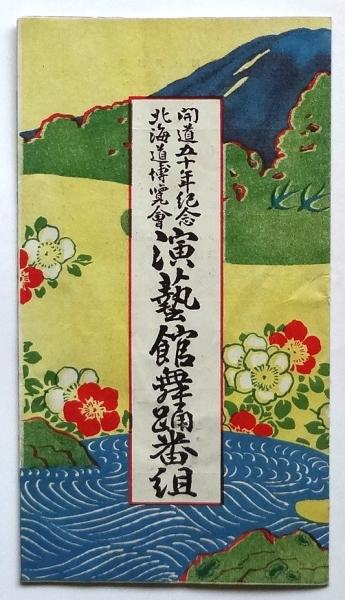 開道五十年紀念
北海道博覽會
演藝館舞踊番組